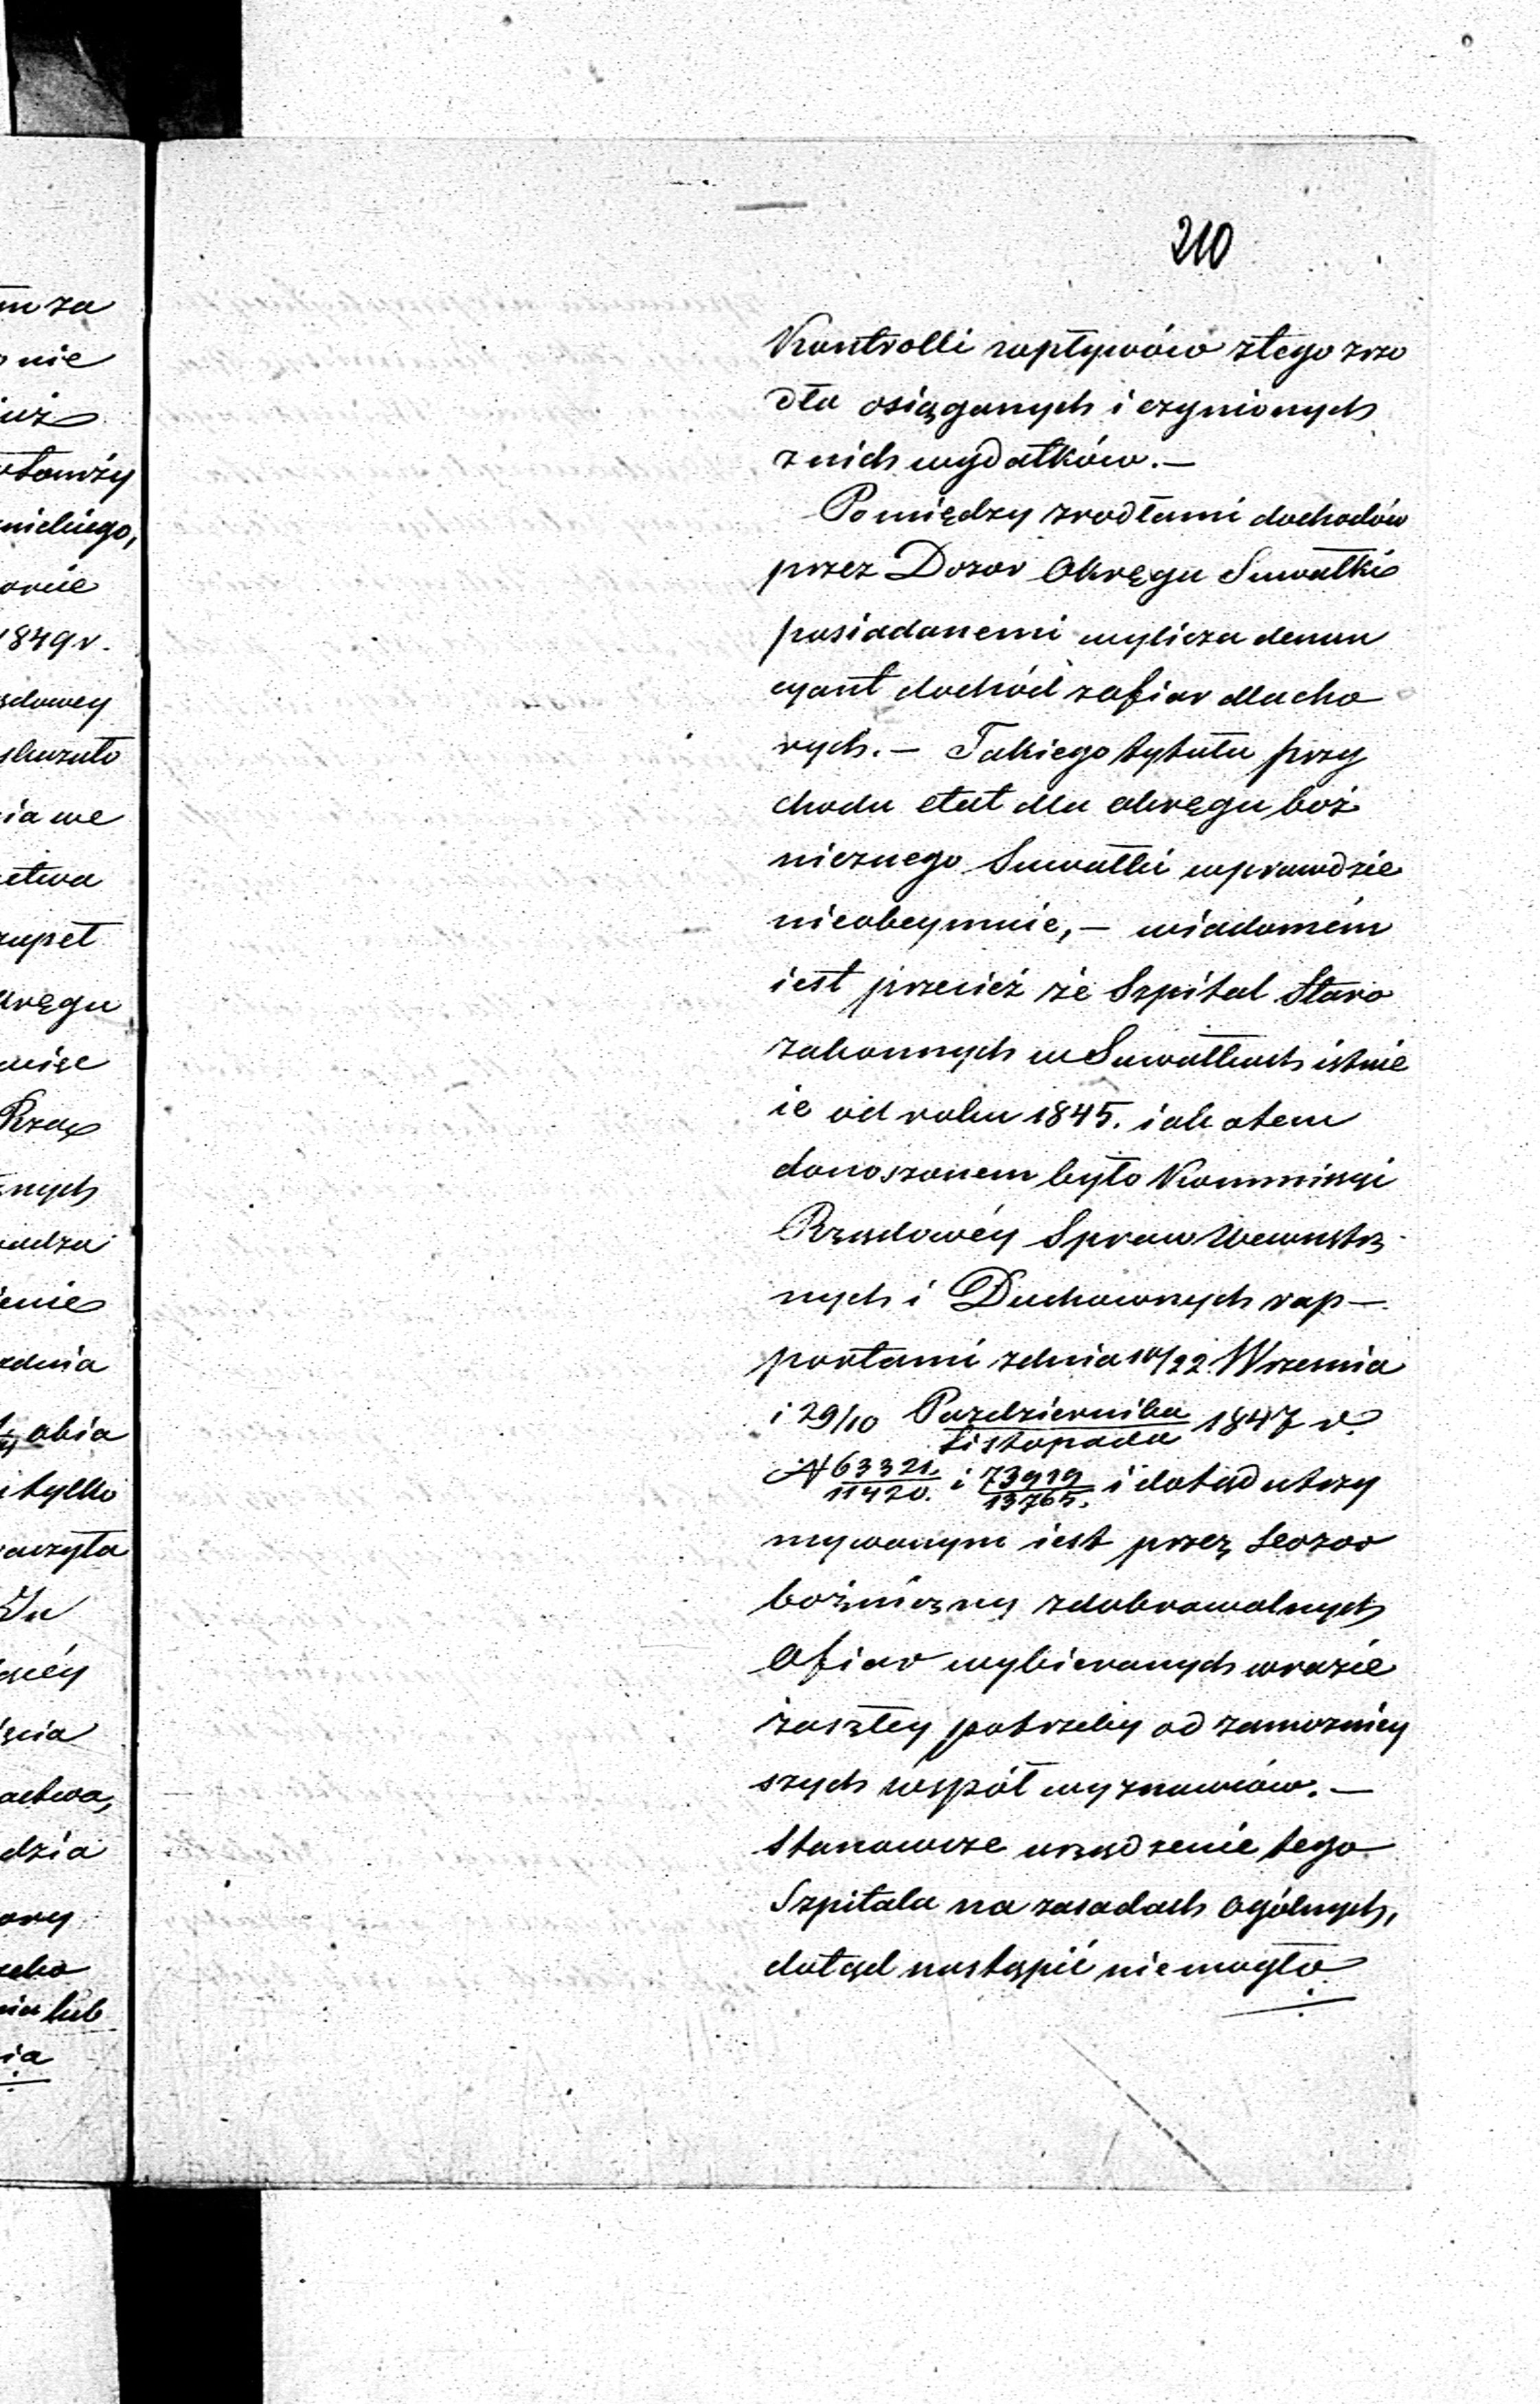 210
Kontrolli wpływów ztego zrzo
dła osiąganych i czynionych
z nich wydatków. —
Pomiędzy zrodłami dochodów
przez Dozor Okręgu Suwałki
posiadanemi wylicza denun
cyant dochód zofiar dla cho
rych. — Takiego tytułu przy
chodu etat dla okręgu boż
nicznego Suwałki wprawdzie
nieobeymuie, — wiadomém
iest przecież że Szpital Staro
zakonnych w Suwałkach istnie
ie od roku 1845. iak otem
donoszonem było Kommissyi
Rządowéy Spraw Wewnętrz
nych i Duchownych rap—
portami zdnia 10/22 Wrzesnia
i 29/10 Pazdziernika/Listopada 1847 r.
N 63321./11420. i 73919/13765. i dotąd utrzy
mywanym iest przez Dozor
bożniczny zdobrowolnych
Ofiar wybieranych wrazie
zaszłey potrzeby od zamozniey
szych współ wyznawców. —
Stanowcze urządzenie tego
Szpitala na zasadach ogólnych,
dotąd nastąpić niemogło
m za
nie
iuż
nickiego,
1849 r.
ządowey
skazało
ia we
ctwa
zupeł
kręgu
więc
nych
adza
enie
zdnia
obia
tylko
aczyła
ącéy
ęcia
actwa,
dzia
ory
nia lub
ia